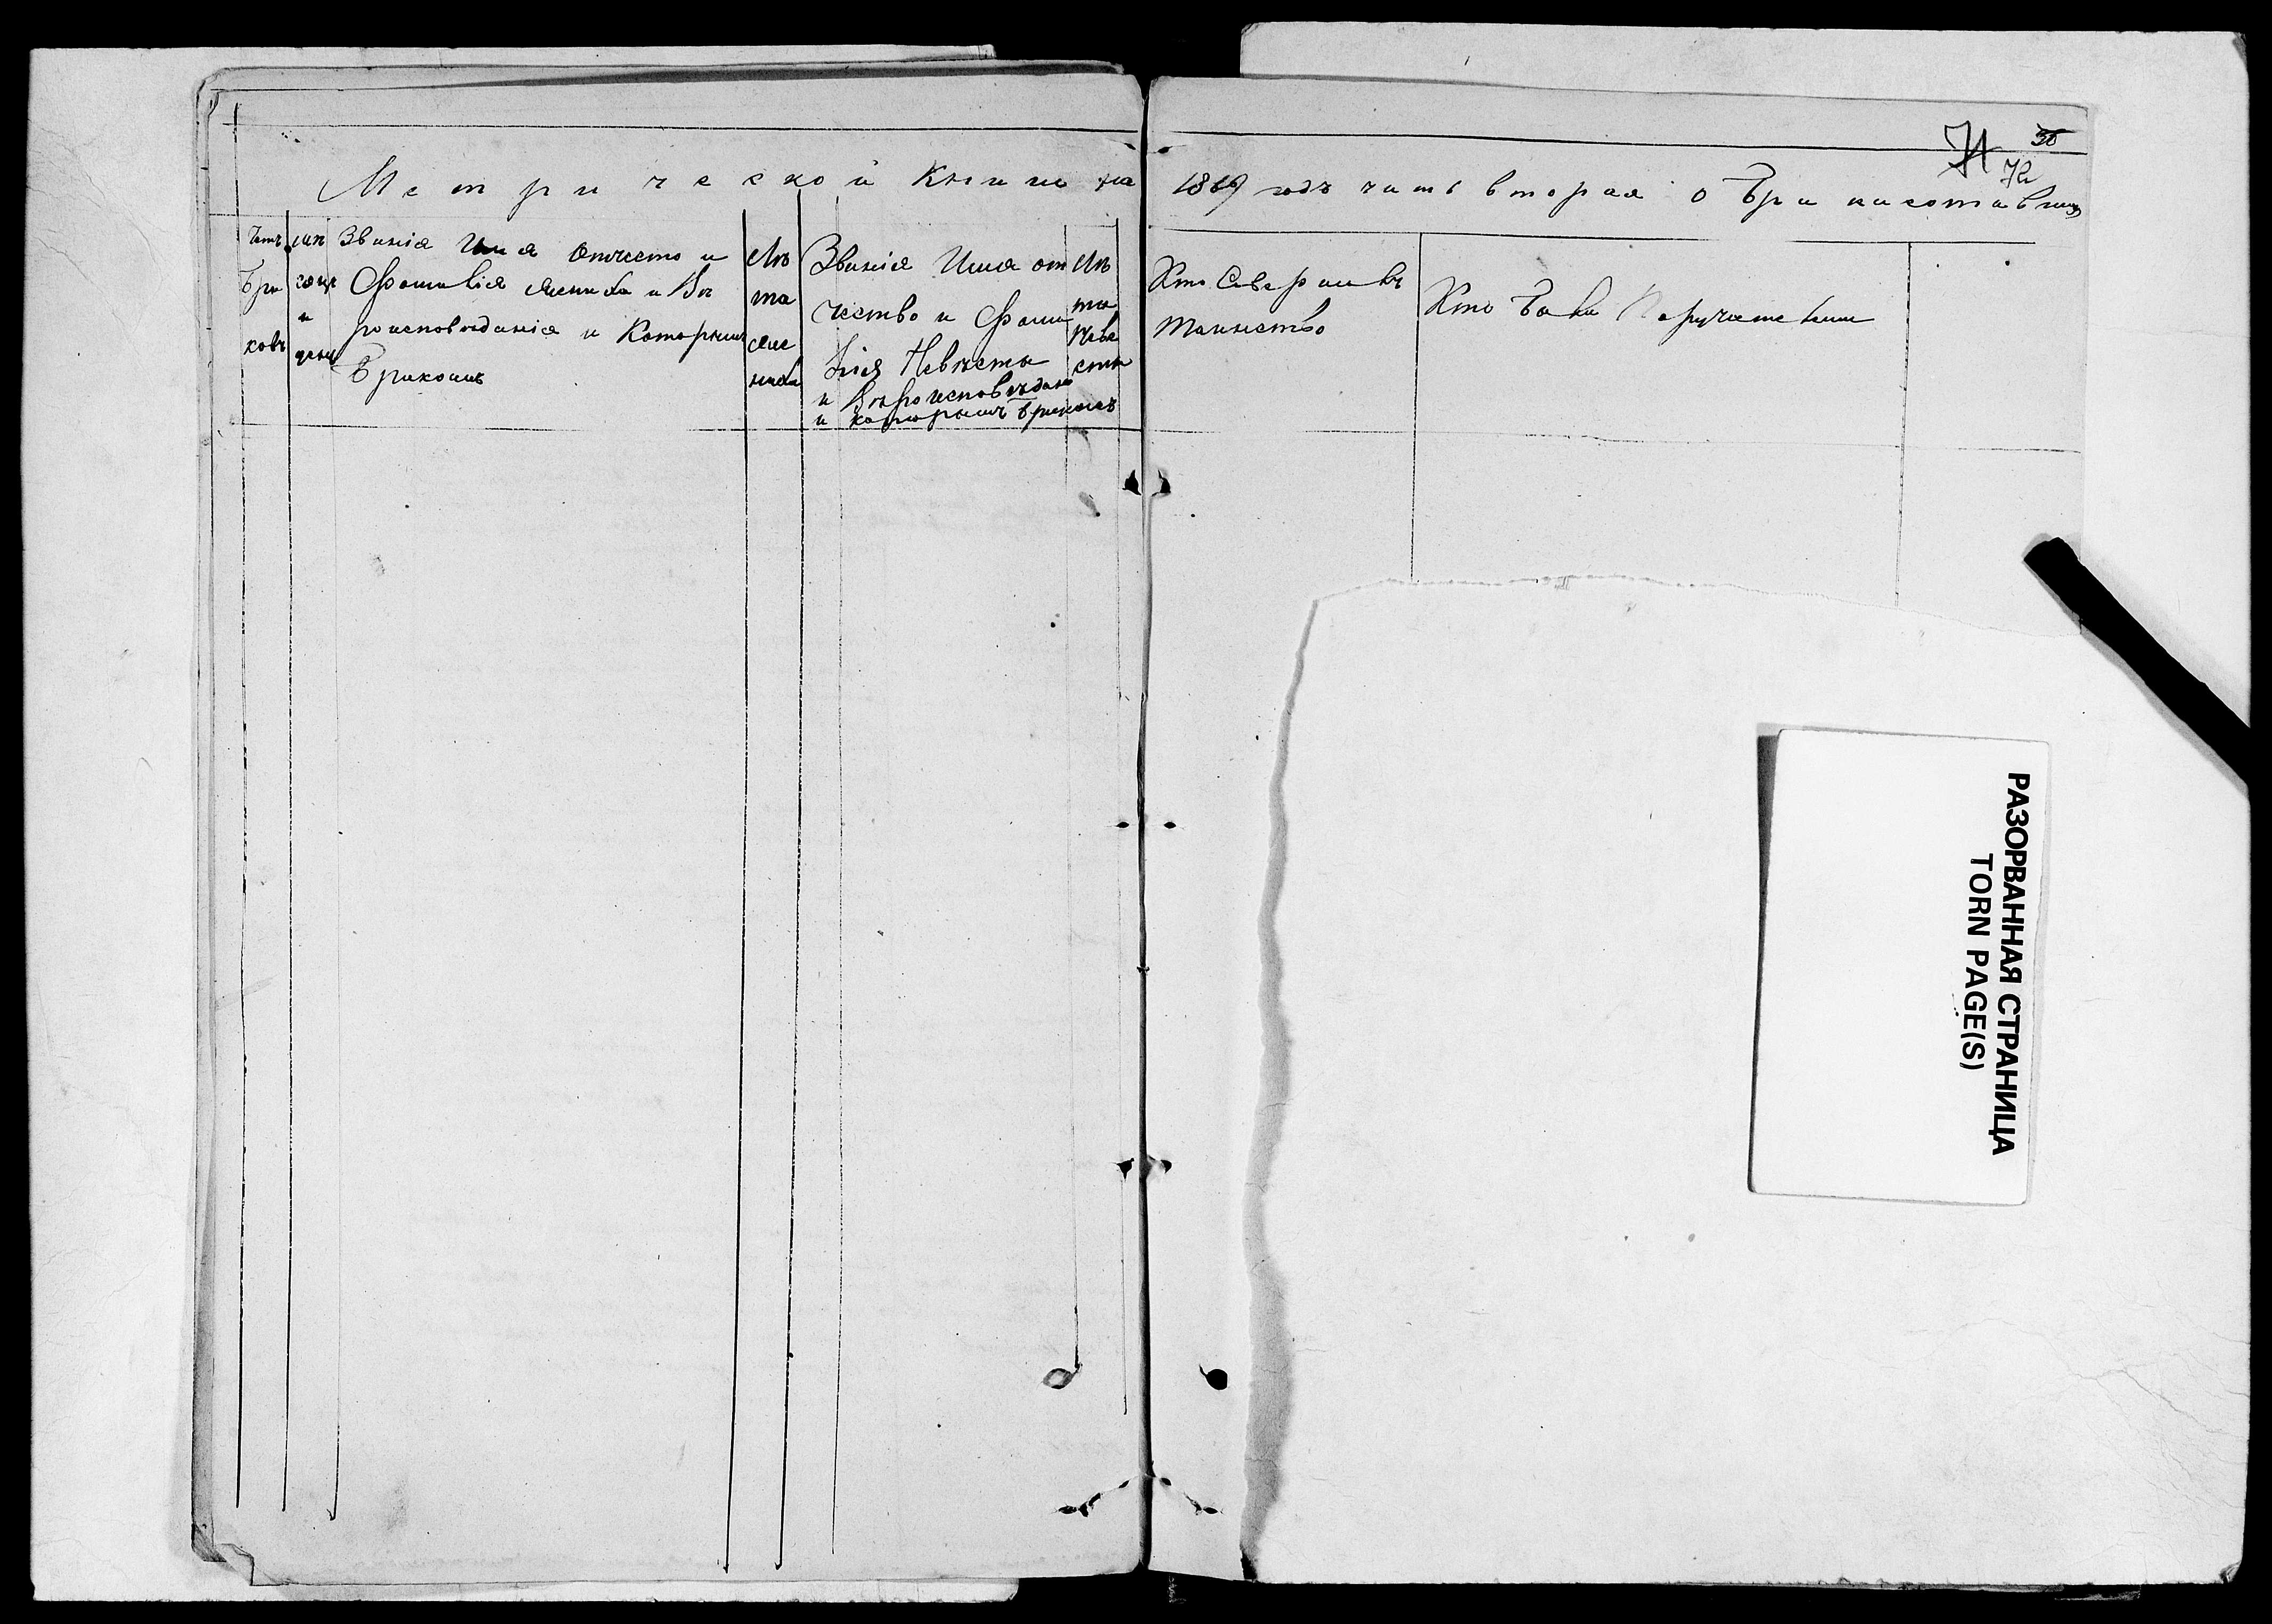 Метрической Книги на 1869 годъ часть вторая о бракисотавших
30
71
72
Счетъ
бра
ковъ
мѣ
сяцъ
и
день
Званія Имя Отчество и
Фамилія жениха и Вѣ
роисповѣданія и Которымъ
Бракомъ
Лѣ
та
жениха
Званія Имя от
чество и Фами
лія Невѣсты
и Вѣроисповѣдан
и которымъ бракомъ
Лѣ
та
Невѣ
сты
Кто Совершилъ
таинство
Кто были Поручители
РАЗОРВАННАЯ СТРАНИЦА
TORN PAGE(S)